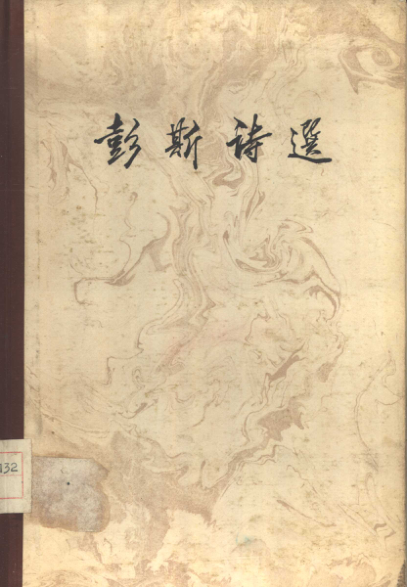 彭斯詩選
132